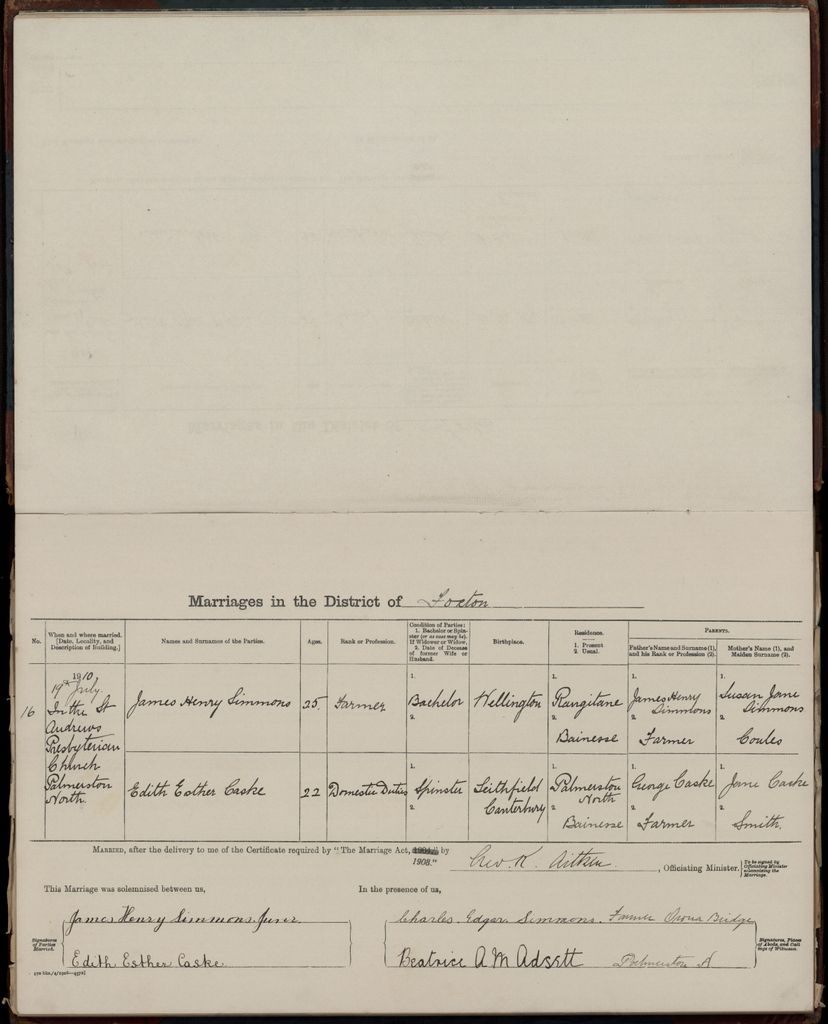 Marriages in the District of Foxton
No.
When and where married. [Date, Locality, and Description of Building.]
Names and Surnames of the Parties.
Ages.
Rank or Profession.
Condition of Parties: 1. Bachelor or Spinster (or as case may be). If Widower or Widow, 2. Date of Decease of former Wife or Husband.
Birthplace.
Residence. 1. Present. 2. Usual.
PARENTS.
Father's Name and Surname (1), and his Rank or Profession (2).
Mother's Name (1), and Maiden Surname (2).
16
1910
19th July
In the St
Andrews
Presbyterian
Church
Palmerston
North.
James Henry Simmons
25
Farmer
1.
Bachelor
2.
Wellington
1.
Rangitane
2.
Bainesse
1.
James Henry
Simmons
2.
Farmer
1.
Susan Jane
Simmons
2.
Coules
Edith Esther Caske
22
Domestic Duties
1.
Spinster
2.
Leithfield
Canterbury
1.
Palmerston
North
2.
Bainesse
1.
George Caske
2.
Farmer
1.
Jane Caske
2.
Smith.
MARRIED, after the delivery to me of the Certificate required by "The Marriage Act, 1904," by
1908."
Geo. K. Aitken, Officiating Minister.
[To be signed by Officiating Minister solemnizing the Marriage.
This Marriage was solemnised between us,
In the presence of us,
Signatures of Parties Married.
James Henry Simmons Junr.
Edith Esther Caske.
Charles Edgar Simmons. Farmer Oroua Bridge
Beatrice A M Adsett Palmerston N
Signatures, Places of Abode, and Callings of Witnesses.